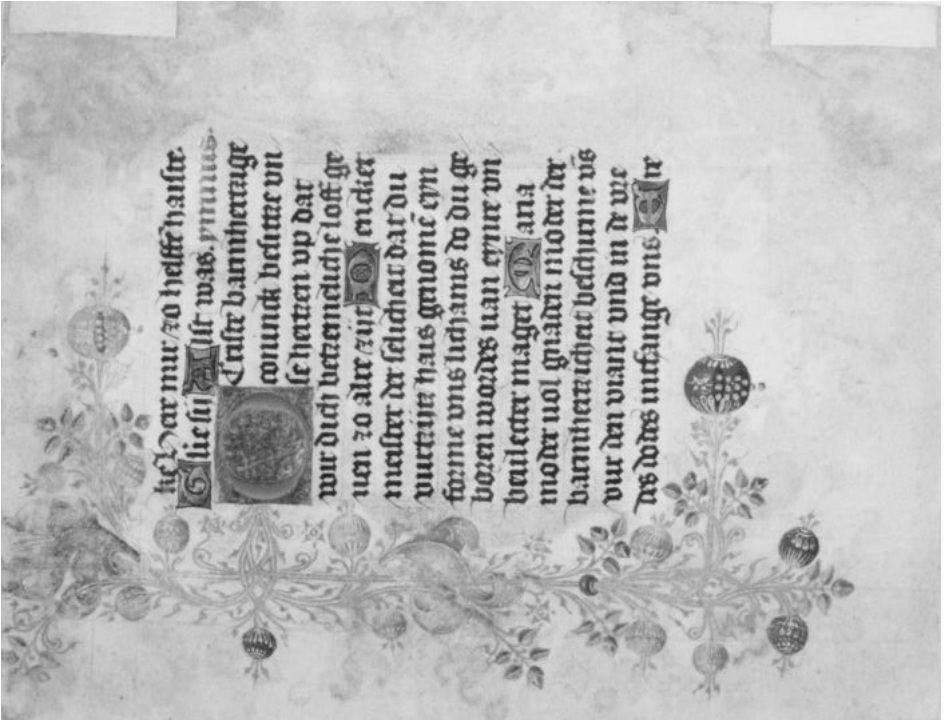 here mir zo helffe haiste.
Glie sij Alst was. ymnus.
O Criste barmhertzige
connick besitze vn
se hertzen vp dat
wir dich betzemeliche loff ge
uen zo alre zijt Gencker
meister der selicheit dat du
vurtzijtz hais genomē eyn
forme vns lichams do du ge
boren wordes uan eynre vn
beulecter maget Maria
moder uol gnaden moder der
barmhertzicheit beschirme vns
vur den viant vnd in de vre
des dodes intfange vns Ere